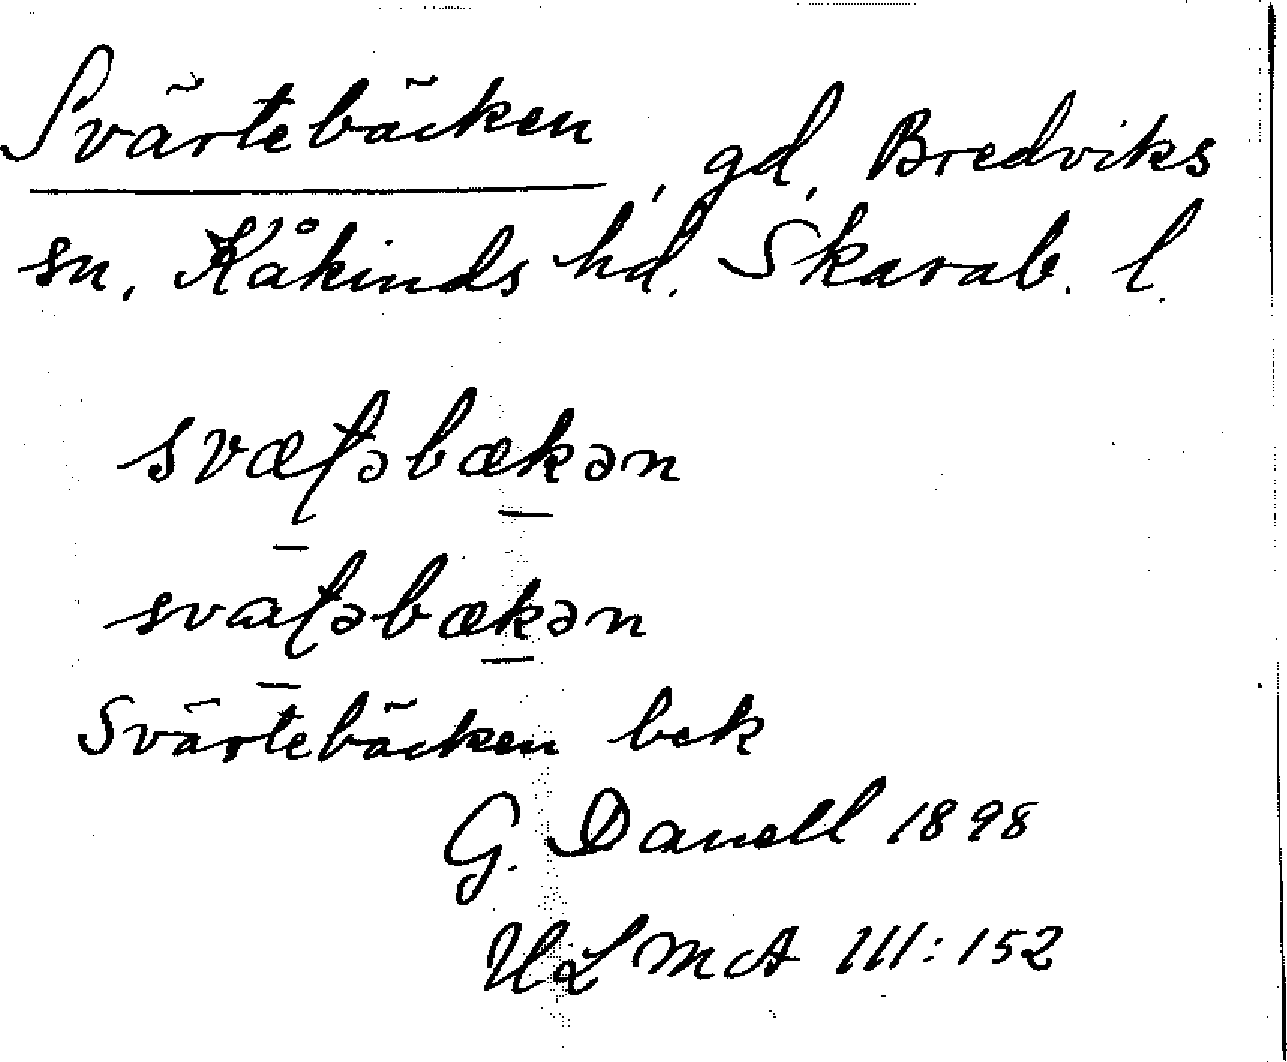 Svärtebäcken, gd, Bredviks
sn, Kåkinds hd. Skarab. l.
svæʈəbækən
svaʈəbækən
Svärtebäcken bek
G. Danell 1898
ULMA 111:152